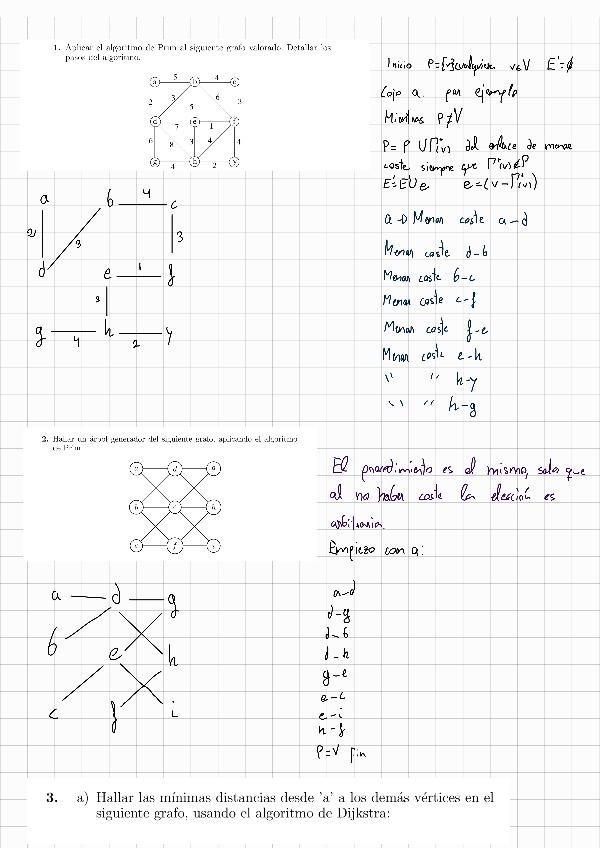 1. Aplicar el algoritmo de Prim al siguiente grafo valorado. Detallar los
pasos del algoritmo.
a 5 b 4 c
2 3 5 6 3
d 7 e 1 f
6 8 3 4 4
g 4 h 2
Inicio P={v} cualquiera v∈V E'=∅
Cojo a por ejemplo
Mientras P≠V
P = P ∪ Γ(v) del enlace de menor
coste siempre que Γ(v)∉P
E'=E'∪e e=(v-Γ(v))
a → Menor coste a-d
Menor coste d-b
Menor coste b-c
Menor coste c-f
Menor coste f-e
Menor coste e-h
" " h-y
" " h-g
a b 4 c
2 3 3
d e 1 f
3
g 4 h 2 y
2. Hallar un árbol generador del siguiente grafo, aplicando el algoritmo
de Prim
El procedimiento es el mismo, solo que
al no haber coste la elección es
arbitraria.
Empiezo con a:
a-d
d-g
d-b
d-h
g-e
e-c
e-i
h-f
P=V fin
a d g
b e h
c f i
3. a) Hallar las mínimas distancias desde 'a' a los demás vértices en el
siguiente grafo, usando el algoritmo de Dijkstra: